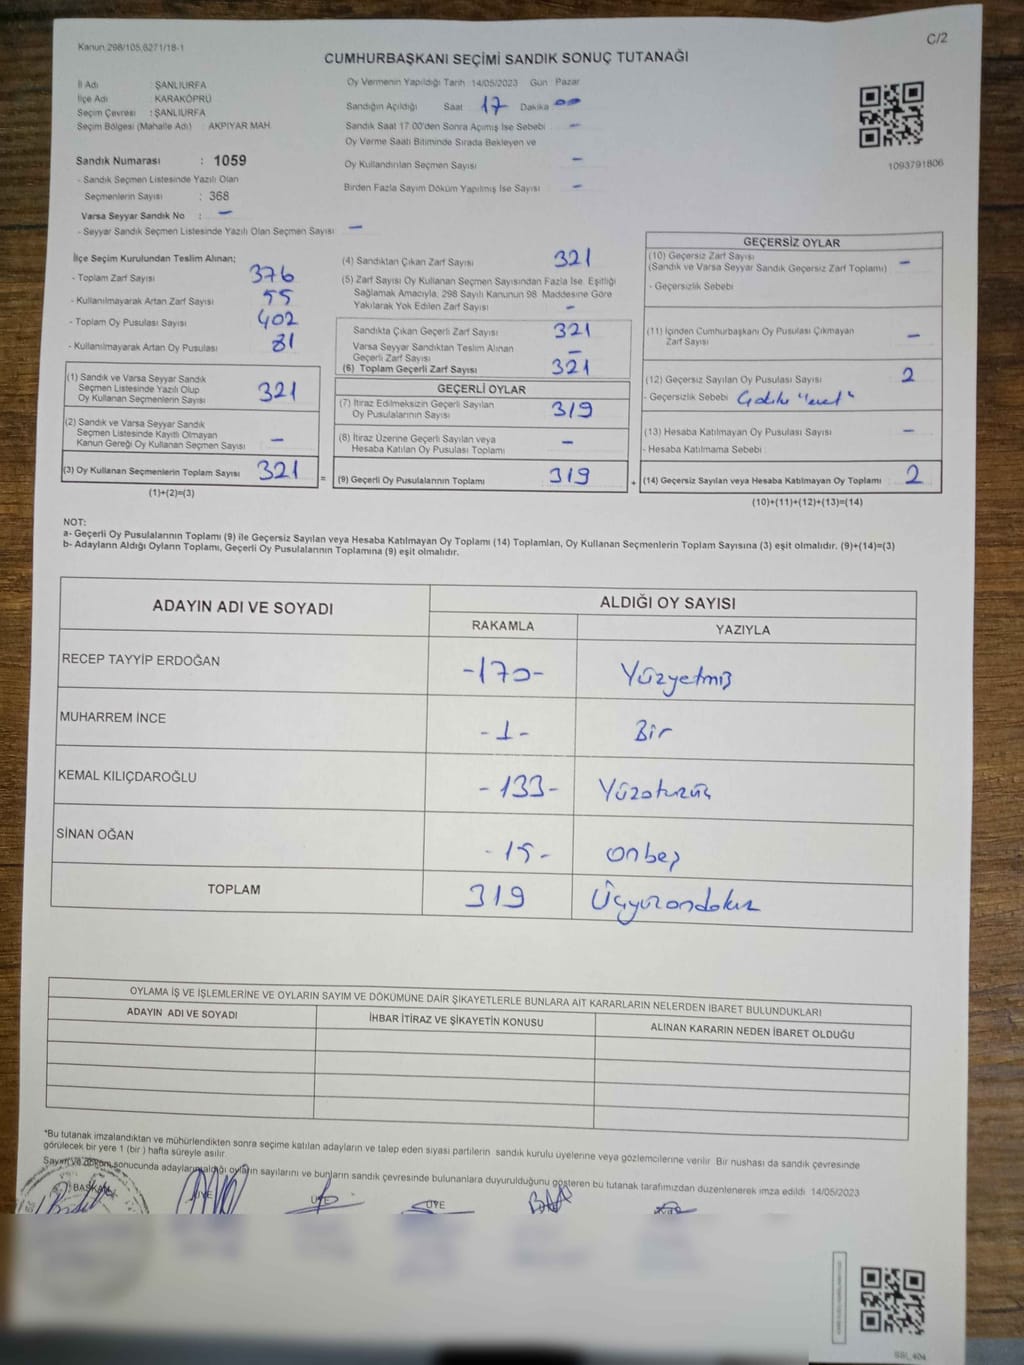 Kanun 298/105,6271/18-1
C/2
CUMHURBAŞKANI SEÇİMİ SANDIK SONUÇ TUTANAĞI
İl Adı : ŞANLIURFA
İlçe Adı : KARAKÖPRÜ
Seçim Çevresi : ŞANLIURFA
Seçim Bölgesi (Mahalle Adı) : AKPIYAR MAH.
Sandık Numarası : 1059
- Sandık Seçmen Listesinde Yazılı Olan
Seçmenlerin Sayısı : 368
Varsa Seyyar Sandık No : –
- Seyyar Sandık Seçmen Listesinde Yazılı Olan Seçmen Sayısı : –
Oy Vermenin Yapıldığı Tarih 14/05/2023 Gün Pazar
Sandığın Açıldığı Saat 17 Dakika 00
Sandık Saat 17:00'den Sonra Açımış İse Sebebi –
Oy Verme Saati Bitiminde Sırada Bekleyen ve
Oy Kullandırılan Seçmen Sayısı –
Birden Fazla Sayım Döküm Yapılmış İse Sayısı –
1093791806
İlçe Seçim Kurulundan Teslim Alınan;
- Toplam Zarf Sayısı 376
- Kullanılmayarak Artan Zarf Sayısı 55
- Toplam Oy Pusulası Sayısı 402
- Kullanılmayarak Artan Oy Pusulası 81
(1) Sandık ve Varsa Seyyar Sandık
Seçmen Listesinde Yazılı Olup
Oy Kullanan Seçmenlerin Sayısı 321
(2) Sandık ve Varsa Seyyar Sandık
Seçmen Listesinde Kayıtlı Olmayan
Kanun Gereği Oy Kullanan Seçmen Sayısı –
(3) Oy Kullanan Seçmenlerin Toplam Sayısı 321
(1)+(2)=(3)
(4) Sandıktan Çıkan Zarf Sayısı 321
(5) Zarf Sayısı Oy Kullanan Seçmen Sayısından Fazla İse, Eşitliği
Sağlamak Amacıyla, 298 Sayılı Kanunun 98. Maddesine Göre
Yakılarak Yok Edilen Zarf Sayısı –
Sandıkta Çıkan Geçerli Zarf Sayısı 321
Varsa Seyyar Sandıktan Teslim Alınan
Geçerli Zarf Sayısı –
(6) Toplam Geçerli Zarf Sayısı 321
GEÇERLİ OYLAR
(7) İtiraz Edilmeksizin Geçerli Sayılan
Oy Pusulalarının Sayısı 319
(8) İtiraz Üzerine Geçerli Sayılan veya
Hesaba Katılan Oy Pusulası Toplamı –
= (9) Geçerli Oy Pusulalarının Toplamı 319
GEÇERSİZ OYLAR
(10) Geçersiz Zarf Sayısı –
(Sandık ve Varsa Seyyar Sandık Geçersiz Zarf Toplamı)
- Geçersizlik Sebebi
(11) İçinden Cumhurbaşkanı Oy Pusulası Çıkmayan
Zarf Sayısı –
(12) Geçersiz Sayılan Oy Pusulası Sayısı 2
- Geçersizlik Sebebi "evet"
(13) Hesaba Katılmayan Oy Pusulası Sayısı –
- Hesaba Katılmama Sebebi
+ (14) Geçersiz Sayılan veya Hesaba Katılmayan Oy Toplamı 2
(10)+(11)+(12)+(13)=(14)
NOT:
a- Geçerli Oy Pusulalarının Toplamı (9) ile Geçersiz Sayılan veya Hesaba Katılmayan Oy Toplamı (14) Toplamları, Oy Kullanan Seçmenlerin Toplam Sayısına (3) eşit olmalıdır. (9)+(14)=(3)
b- Adayların Aldığı Oyların Toplamı, Geçerli Oy Pusulalarının Toplamına (9) eşit olmalıdır.
ADAYIN ADI VE SOYADI
ALDIĞI OY SAYISI
RAKAMLA YAZIYLA
RECEP TAYYİP ERDOĞAN -170- Yüzyetmiş
MUHARREM İNCE -1- Bir
KEMAL KILIÇDAROĞLU -133- Yüzotuzüç
SİNAN OĞAN -15- onbeş
TOPLAM 319 Üçyüzondokuz
OYLAMA İŞ VE İŞLEMLERİNE VE OYLARIN SAYIM VE DÖKÜMÜNE DAİR ŞİKAYETLERLE BUNLARA AİT KARARLARIN NELERDEN İBARET BULUNDUKLARI
ADAYIN ADI VE SOYADI İHBAR İTİRAZ VE ŞİKAYETİN KONUSU ALINAN KARARIN NEDEN İBARET OLDUĞU
*Bu tutanak imzalandıktan ve mühürlendikten sonra seçime katılan adayların ve talep eden siyasi partilerin sandık kurulu üyelerine veya gözlemcilerine verilir. Bir nushası da sandık çevresinde
görülecek bir yere 1 (bir) hafta süreyle asılır.
Sayım ve döküm sonucunda adayların aldığı oyların sayılarını ve bunların sandık çevresinde bulunanlara duyurulduğunu gösteren bu tutanak tarafımızdan düzenlenerek imza edildi. 14/05/2023
BAŞKAN ÜYE ÜYE ÜYE
SSI_404